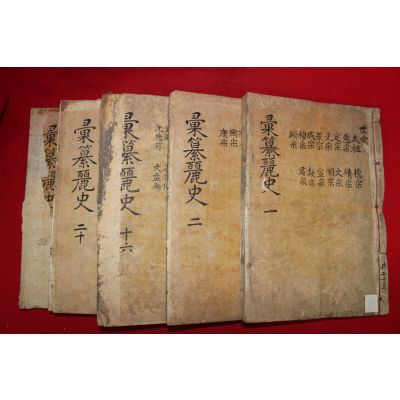 彙纂麗史 一
世家
太祖
惠宗
定宗
光宗
景宗
成宗
穆宗
顯宗
德宗
靖宗
文宗
順宗
宣宗
獻宗
肅宗
共二十三
彙纂麗史 二
睿宗
康宗
彙纂麗史 十六
彙纂麗史 二十
彙纂麗史